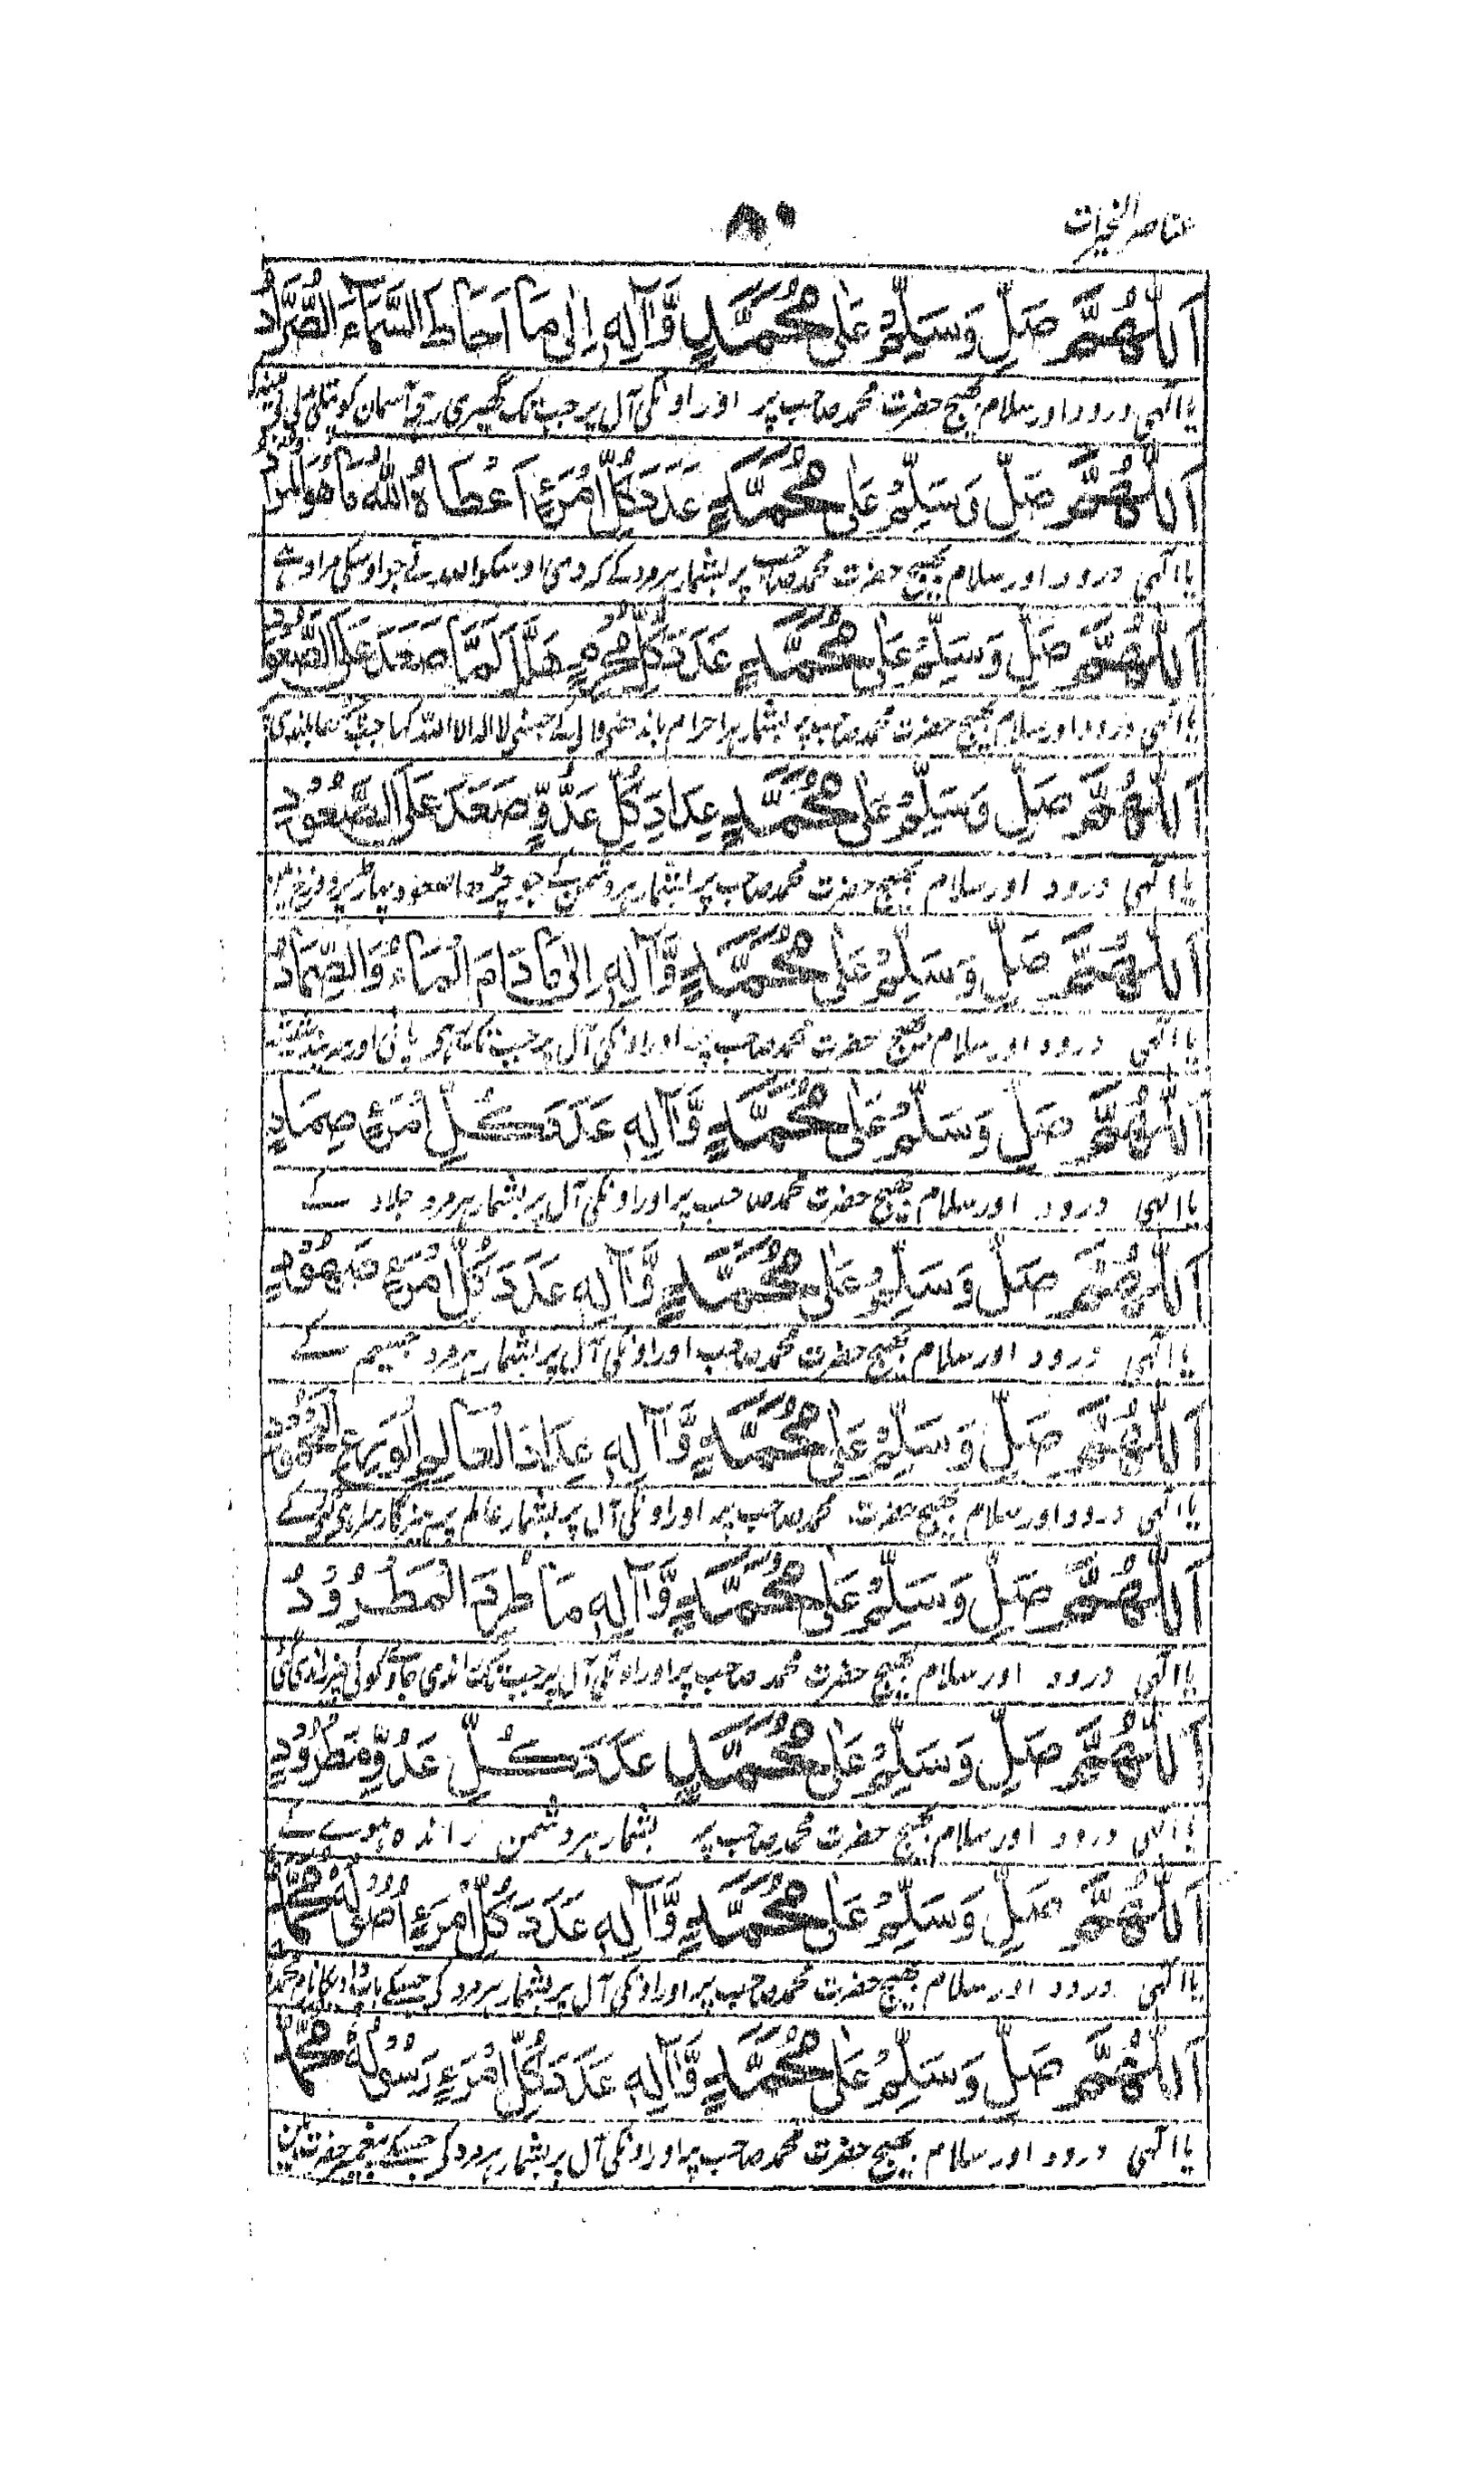 عناصر الخیرات
۸۰
اَللّٰهُمَّ صَلِّ وَسَلِّمْ عَلٰى مُحَمَّدٍ وَّاٰلِهٖ اِلٰى مَا اَحَاطَ السَّمَآءَ الصُّرَّادُ
یا الٰہی درود اور سلام بھیج حضرت محمد صاحب پر اور اونکی آل پر جب تک گھیری رہے آسمان کو
اَللّٰهُمَّ صَلِّ وَسَلِّمْ عَلٰى مُحَمَّدٍ عَدَدَ كُلِّ امْرَءٍ اَعْطَاهُ اللّٰهُ مَا هُوَ الْمُرَادُ
یا الٰہی درود اور سلام بھیج حضرت محمد صاحب پر بشمار ہر مرد کے کہ دی اوسکو اللہ نے جو اوسکی مراد ہے
اَللّٰهُمَّ صَلِّ وَسَلِّمْ عَلٰى مُحَمَّدٍ عَدَدَ كُلِّ مُحْرِمٍ هَلَّلَ لَمَّا صَعَدَ عَلَى الصَّعُوْدِ
یا الٰہی درود اور سلام بھیج حضرت محمد صاحب پر بشمار ہر احرام باندھنی والے کے جسنی لا الہ الا اللہ کہا جب
اَللّٰهُمَّ صَلِّ وَسَلِّمْ عَلٰى مُحَمَّدٍ عِدَادَ كُلِّ عَدُوٍّ صَعَدَ عَلَى الصَّعُوْدِ
یا الٰہی درود اور سلام بھیج حضرت محمد صاحب پر بشمار ہر دشمن کے جو چڑھا صعود پہاڑ پر دوزخ میں
اَللّٰهُمَّ صَلِّ وَسَلِّمْ عَلٰى مُحَمَّدٍ وَّاٰلِهٖ اِلٰى مَا دَامَ الْمَآءُ وَالصِّمَادُ
یا الٰہی درود اور سلام بھیج حضرت محمد صاحب پر اور اونکی آل پر جب تک ہی پانی اور
اَللّٰهُمَّ صَلِّ وَسَلِّمْ عَلٰى مُحَمَّدٍ وَّاٰلِهٖ عَدَدَ كُلِّ امْرَءٍ صِمَادٍ
یا الٰہی درود اور سلام بھیج حضرت محمد صاحب پر اور اونکی آل پر بشمار ہر مرد جلاد کے
اَللّٰهُمَّ صَلِّ وَسَلِّمْ عَلٰى مُحَمَّدٍ وَّاٰلِهٖ عَدَدَ كُلِّ امْرَءٍ صَهُوْدٍ
یا الٰہی درود اور سلام بھیج حضرت محمد صاحب اور اونکی آل پر بشمار ہر مرد جسیم کے
اَللّٰهُمَّ صَلِّ وَسَلِّمْ عَلٰى مُحَمَّدٍ وَّاٰلِهٖ عِدَادَ الْعَالِمِ الْوَرِعِ
یا الٰہی درود اور سلام بھیج حضرت محمد صاحب پر اور اونکی آل پر بشمار عالم پرہیزگار
اَللّٰهُمَّ صَلِّ وَسَلِّمْ عَلٰى مُحَمَّدٍ وَّاٰلِهٖ مَا طُرِدَ الْمَطْرُوْدُ
یا الٰہی درود اور سلام بھیج حضرت محمد صاحب پر اور اونکی آل پر جب تک راندی جاوے کوئی چیز راندی گئی
اَللّٰهُمَّ صَلِّ وَسَلِّمْ عَلٰى مُحَمَّدٍ عَدَدَ كُلِّ عَدُوٍّ مَطْرُوْدٍ
یا الٰہی درود اور سلام بھیج حضرت محمد صاحب پر بشمار ہر دشمن راندہ ہوے کے
اَللّٰهُمَّ صَلِّ وَسَلِّمْ عَلٰى مُحَمَّدٍ وَّاٰلِهٖ عَدَدَ كُلِّ امْرَءٍ مُحَمَّدٌ
یا الٰہی درود اور سلام بھیج حضرت محمد صاحب پر اور اونکی آل پر بشمار ہر مرد کی جسکے نام محمد
اَللّٰهُمَّ صَلِّ وَسَلِّمْ عَلٰى مُحَمَّدٍ وَّاٰلِهٖ عَدَدَ كُلِّ امْرَءٍ رَسُوْلُهٗ مُحَمَّدٌ
یا الٰہی درود اور سلام بھیج حضرت محمد صاحب پر اور اونکی آل پر بشمار ہر مرد کی جسکے پیغمبر حضرت ہین